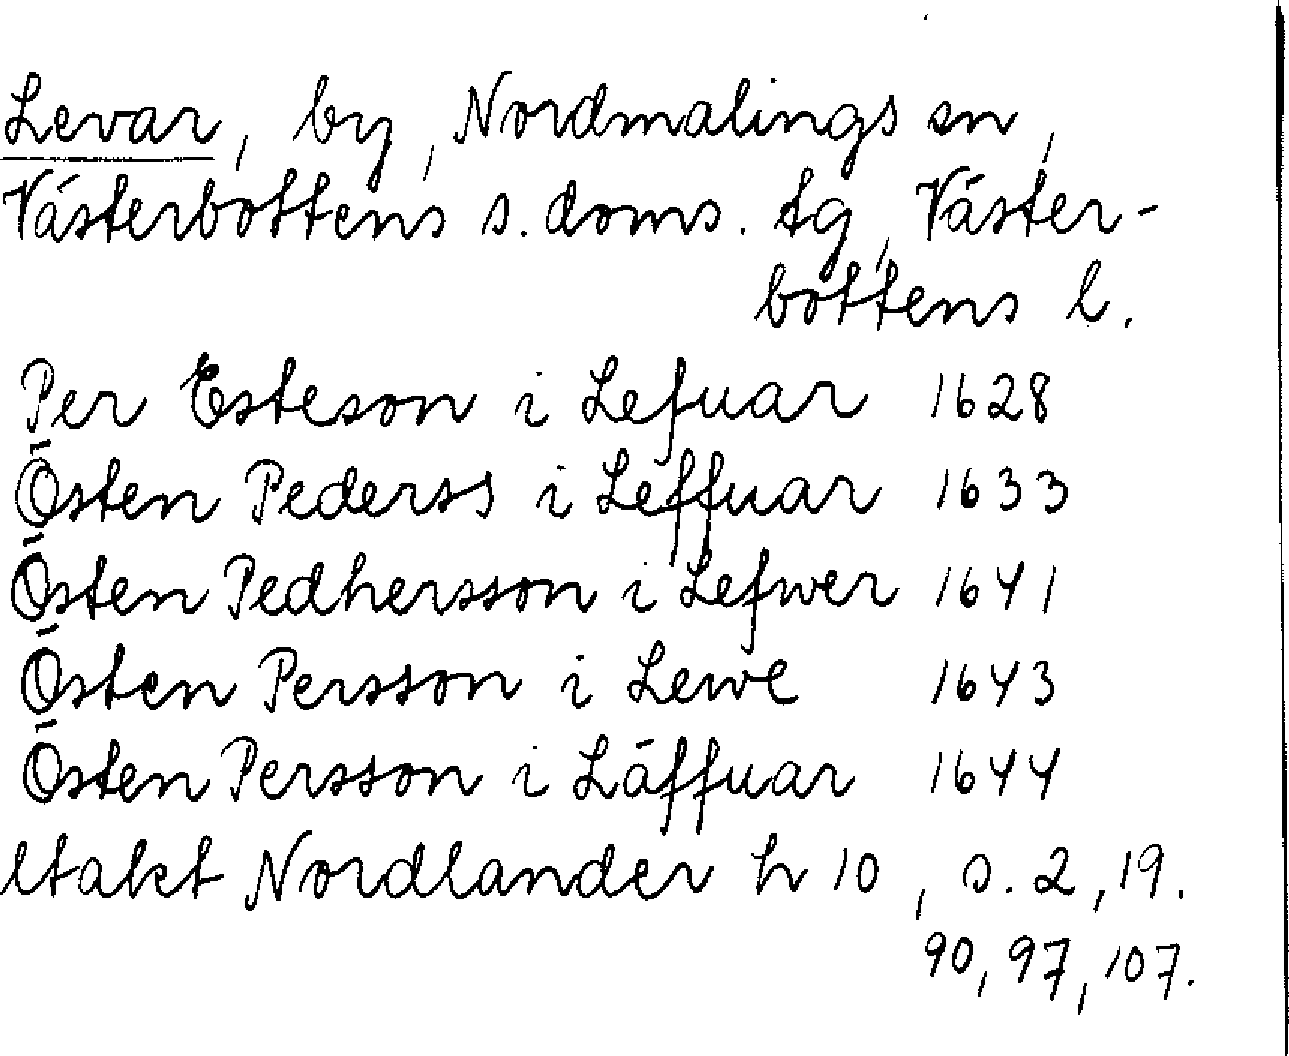 Levar, by, Nordmalings sn,
Västerbottens s. doms. tg, Väster-
bottens l.
Per Esteson i Lefuar 1628
Östen Pederss i Leffuar 1633
Östen Pedhersson i Lefwer 1641
Östen Persson i Lewe 1643
Östen Persson i Läffuar 1644
Nordlander h 10, s. 2, 19.
90, 97, 107.